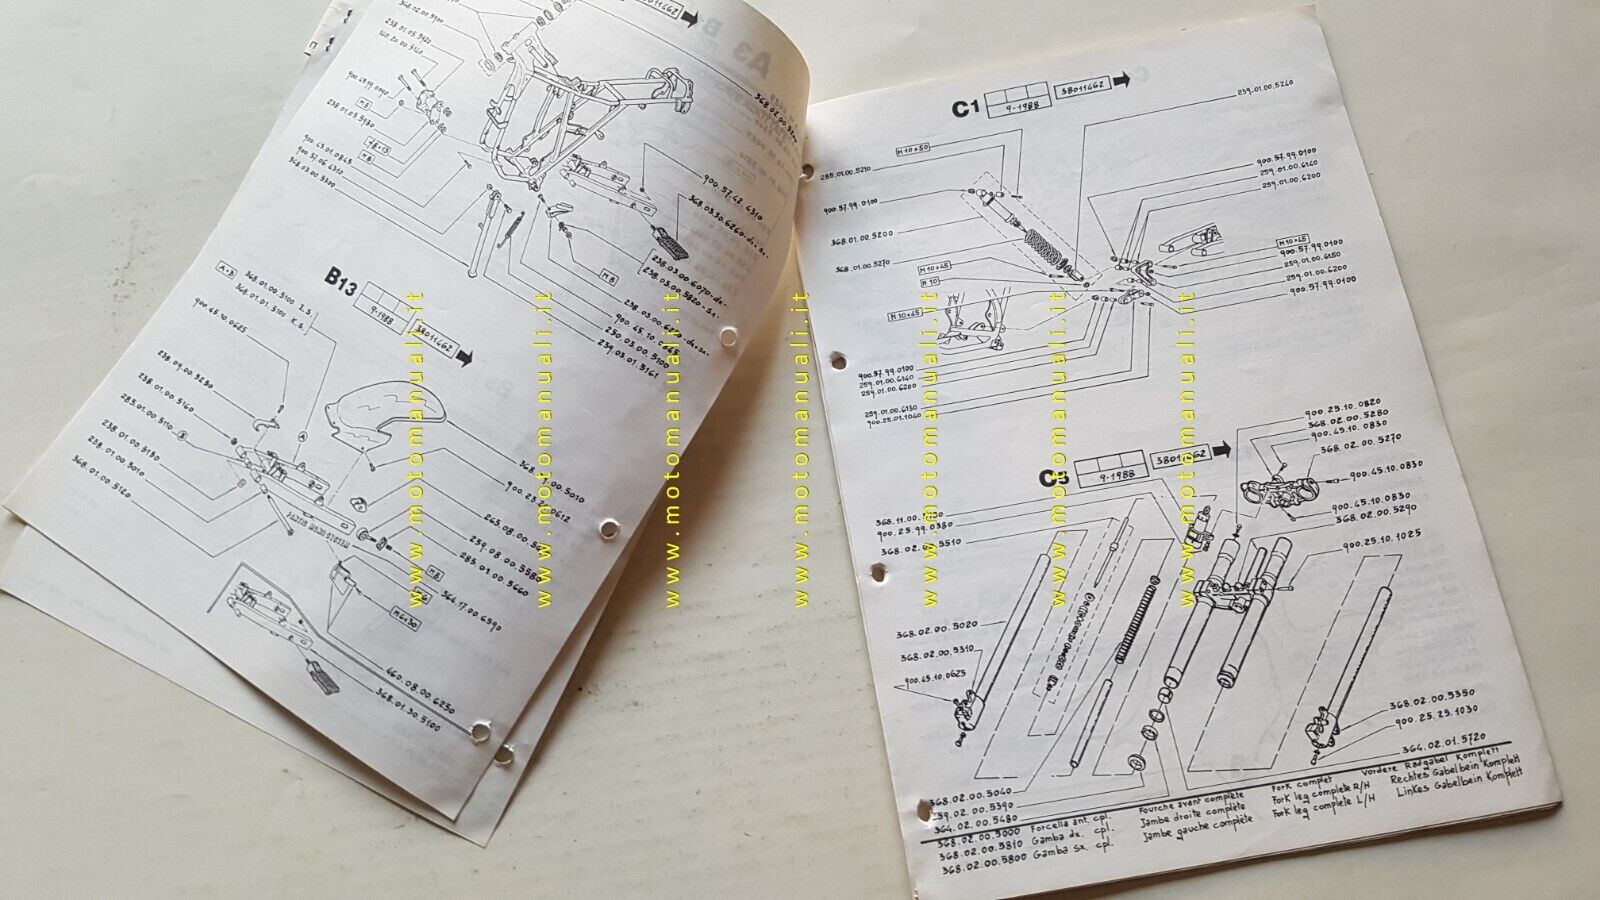 38011462
A3 B
368.02.00.5900
238.01.05.5920
140.20.00.5140
900.45.99.0090
M8
238.01.05.5930
M8
900.45.01.0845
900.51.06.4310
368.03.00.5300
900.57.42.4310
368.03.30.6260-dx-sx-
238.03.00.6070-dx-
238.03.00.5820-sx-
M8
900.45.10.0645
230.03.00.5100
239.03.01.5161
B13
9-1988
38011462
A+B
368.01.00.5100 I.S.
368.01.01.5100 K.S.
900.45.10.0625
238.09.00.5250
238.01.00.5160
285.01.00.5110
238.01.00.5130
238.01.00.5010
368.01.00.5120
900.23.25.0612
239.08.00.5580
285.01.00.5660
M8
364.17.00.6590
M6x30
460.08.00.6250
368.01.30.5100
C1
9-1988
38011462
239.01.00.5240
M10x50
285.01.00.5210
900.57.99.0100
368.01.00.5200
368.01.00.5270
M10x45
M10
M10x45
900.57.99.0100
259.01.00.6140
259.01.00.6200
M10x45
900.57.99.0100
259.01.00.6150
259.01.00.6200
900.57.99.0100
900.57.99.0100
259.01.00.6140
259.01.00.6200
259.01.00.6130
900.25.01.1040
9-1988
38011462
900.25.10.0820
368.02.00.5280
900.45.10.0830
368.02.00.5270
900.45.10.0830
900.45.10.0830
368.02.00.5290
900.25.10.1025
900.25.99.0380
368.02.00.5510
368.02.00.5020
368.02.00.5310
900.45.10.0625
368.02.00.5350
900.25.25.1030
364.02.01.5720
368.02.00.5040
259.02.00.5390
364.02.00.5480
368.02.00.5000 Forcella ant. cpl. Fourche avant complète Fork complet Vordere Radgabel Komplett
368.02.00.5810 Gamba dx. cpl. Jambe droite complète Fork leg complete R/H Rechtes Gabelbein Komplett
368.02.00.5800 Gamba sx. cpl. Jambe gauche complète Fork leg complete L/H Linkes Gabelbein Komplett
www.motomanuali.it
www.motomanuali.it
www.motomanuali.it
www.motomanuali.it
www.motomanuali.it
www.motomanuali.it
www.motomanuali.it